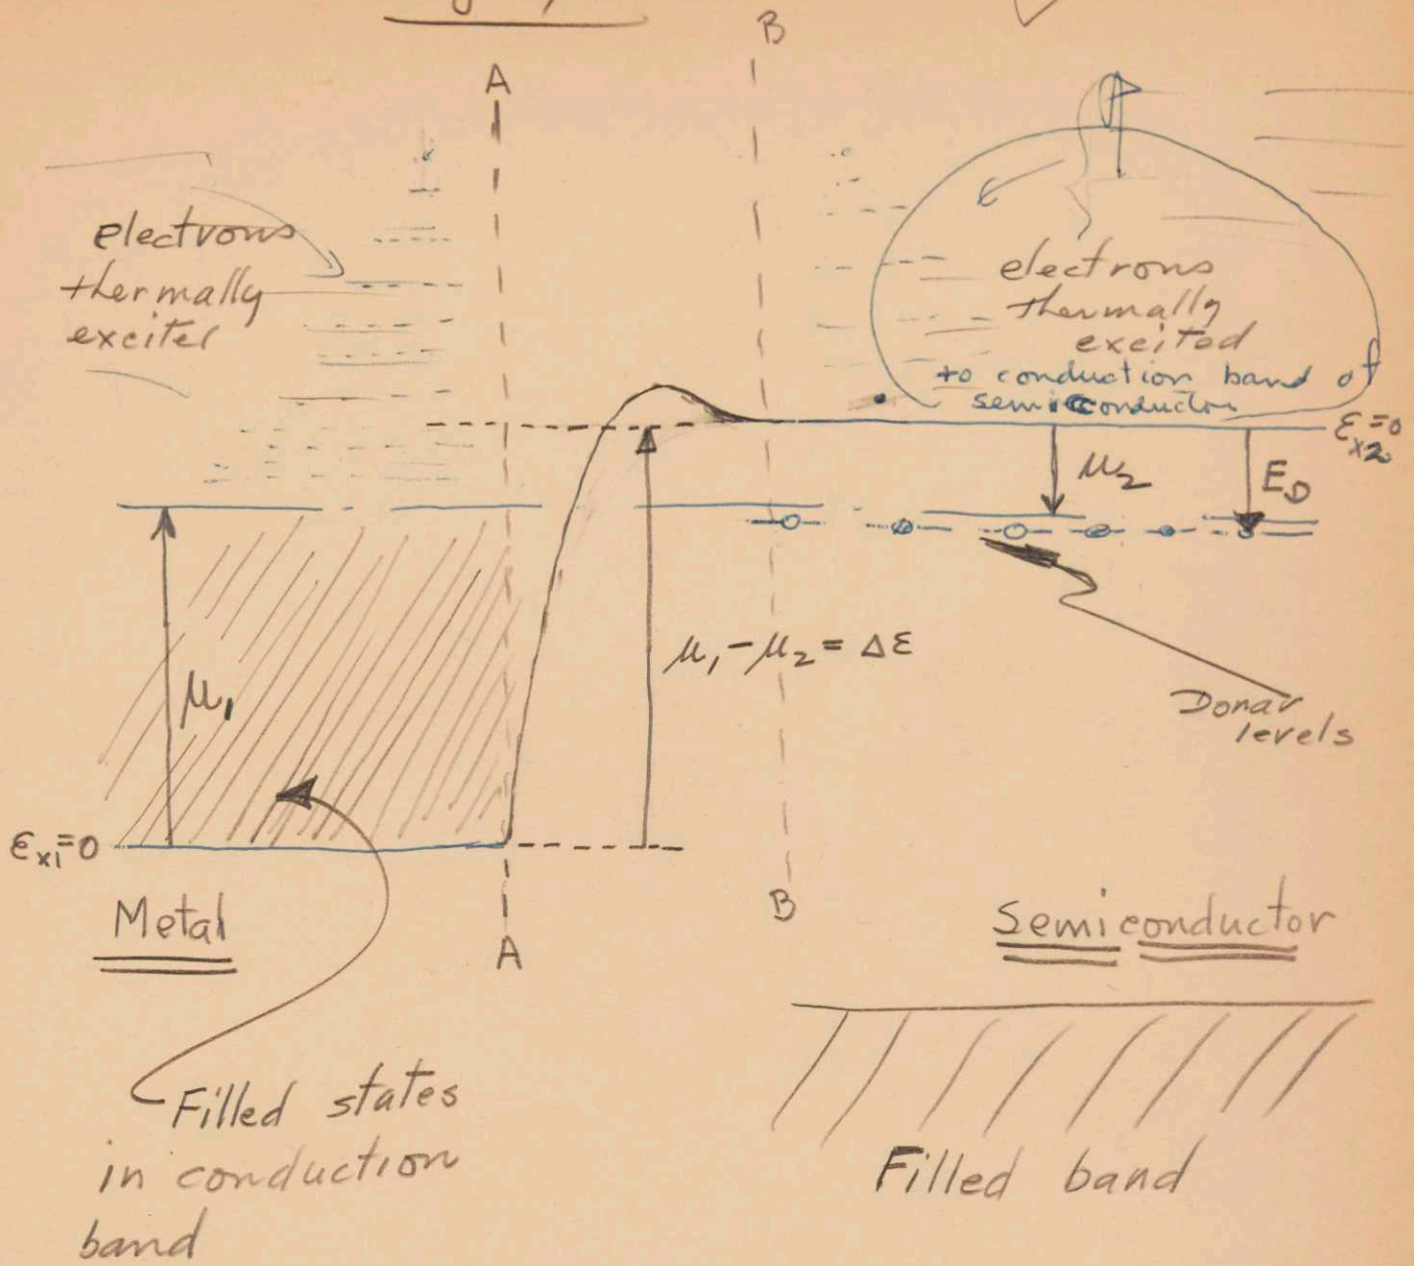 B
A
electrons
thermally
exciter
electrons
thermally
excited
to conduction band of
semiconductor
εx2=0
μ2
ED
μ1
μ1-μ2 = Δε
Donar
levels
εx1=0
Metal
A
B
Semiconductor
Filled states
in conduction
band
Filled band